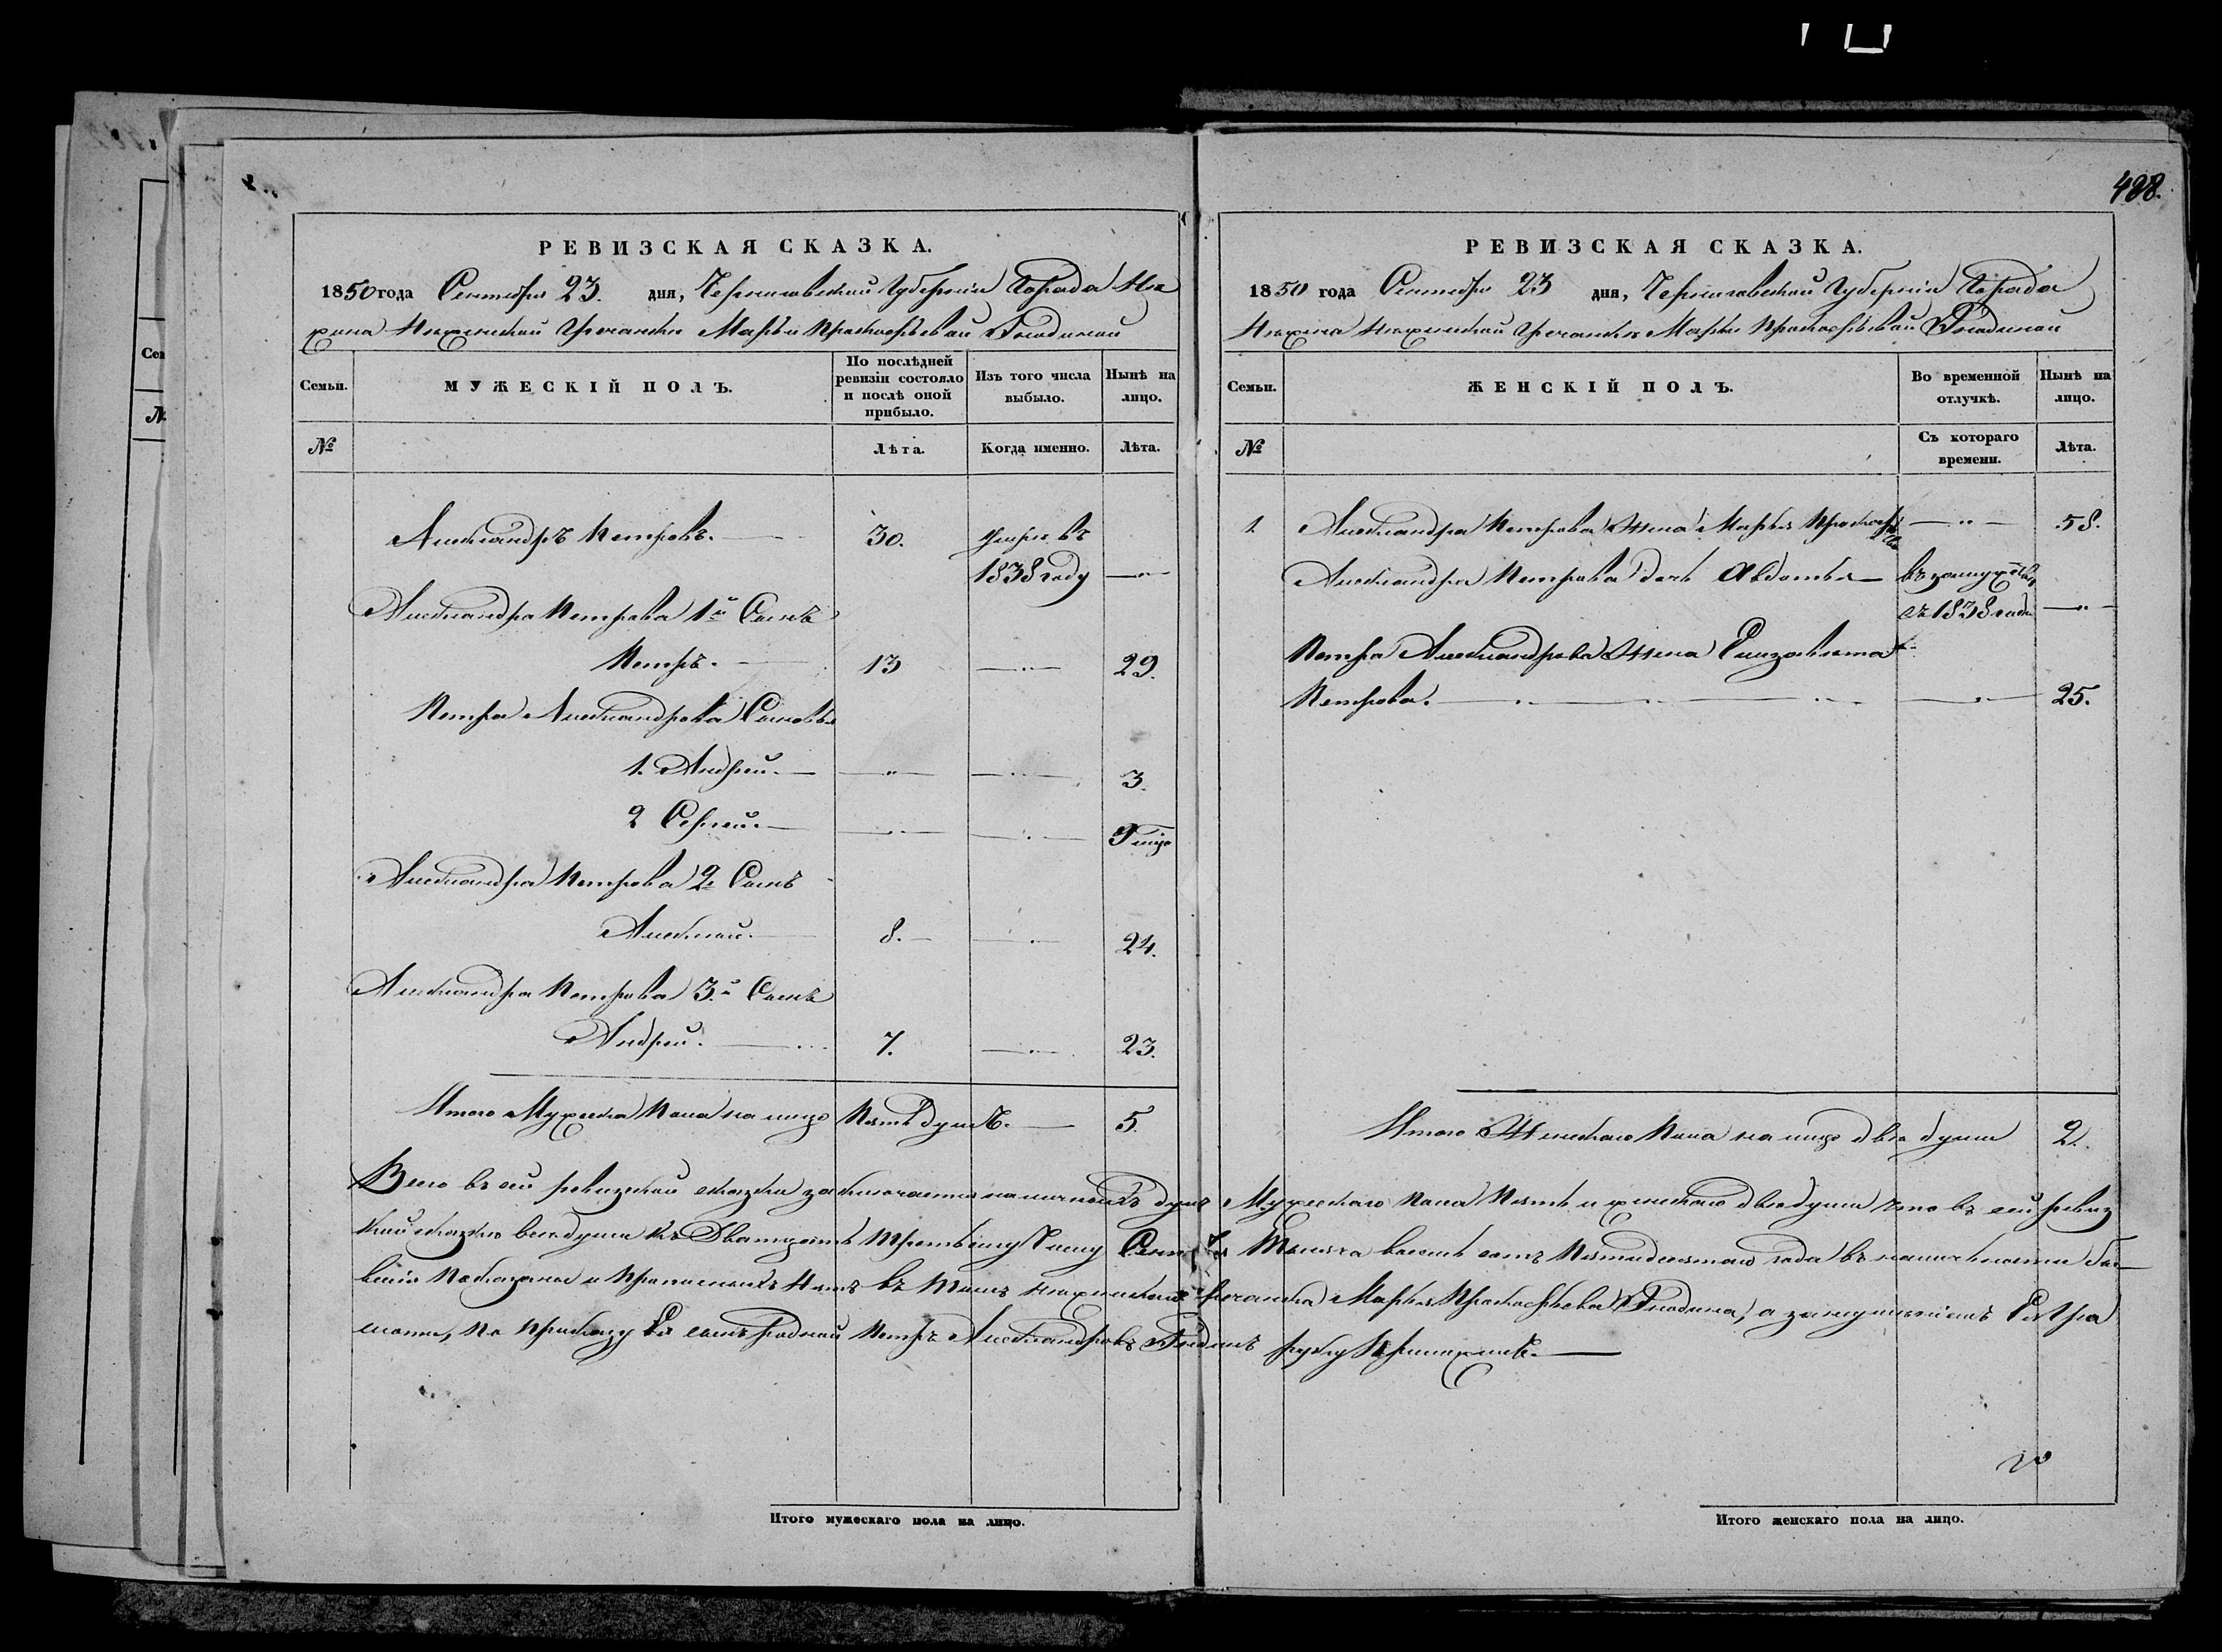 488.
РЕВИЗСКАЯ СКАЗКА.
1850 года Сентября 23. дня, Черниговской Губернии Города Не
жина Нежинской Гречанки Марьи Прокофьевой
Семьи. МУЖЕСКІЙ ПОЛЪ. По послѣдней ревизіи состояло и послѣ оной прибыло. Изъ того числа выбыло. Нынѣ на лицо.
№ Лѣта. Когда именно. Лѣта.
Александръ Петровъ. 30. умре въ
1838 году
Александра Петрова 1й Сынъ
Петръ. 13 29.
Петра Александрова Сыновья
1. Андрей. 3.
2 Сергей.
Александра Петрова 2й Сынъ
Алексей. 8. 24.
Александра Петрова 3й Сынъ
Андрей. 7. 23.
Итого Мужеска Пола на лицо Пять душъ. 5.
РЕВИЗСКАЯ СКАЗКА.
1850 года Сентября 23 дня, Черниговской Губернии Города
Нежина Нежинской Гречанки Марьи Прокофьевой
Семьи. ЖЕНСКІЙ ПОЛЪ. Во временной отлучкѣ. Нынѣ на лицо.
№ Съ котораго времени. Лѣта.
1. Александра Петрова Жена Марья Прокофьева 58.
Александра Петрова дочь Авдотья въ замужстве
съ 1838 года
Петра Александрова Жена Елизавета
Петрова. 25.
Итого Женскаго Пола на лицо две души 2.
Всего въ сей ревизской сказке заключается наличныхъ душъ Мужескаго пола Пять и женскаго две души что въ сей ревиз
кой сказке все души къ Двадцать третьему Числу Сентября Тысяча восемь сотъ Пятидесятого года въ наличности
Показаны и Прописныхъ Нетъ въ томъ нежинская Гречанка Марья Прокофьева, а за неумениемъ Ея Гра
моты, По Приказу Ея сынъ родной Петръ Александровъ руку Приложилъ.
Итого мужескаго пола на лицо.
Итого женскаго пола на лицо.